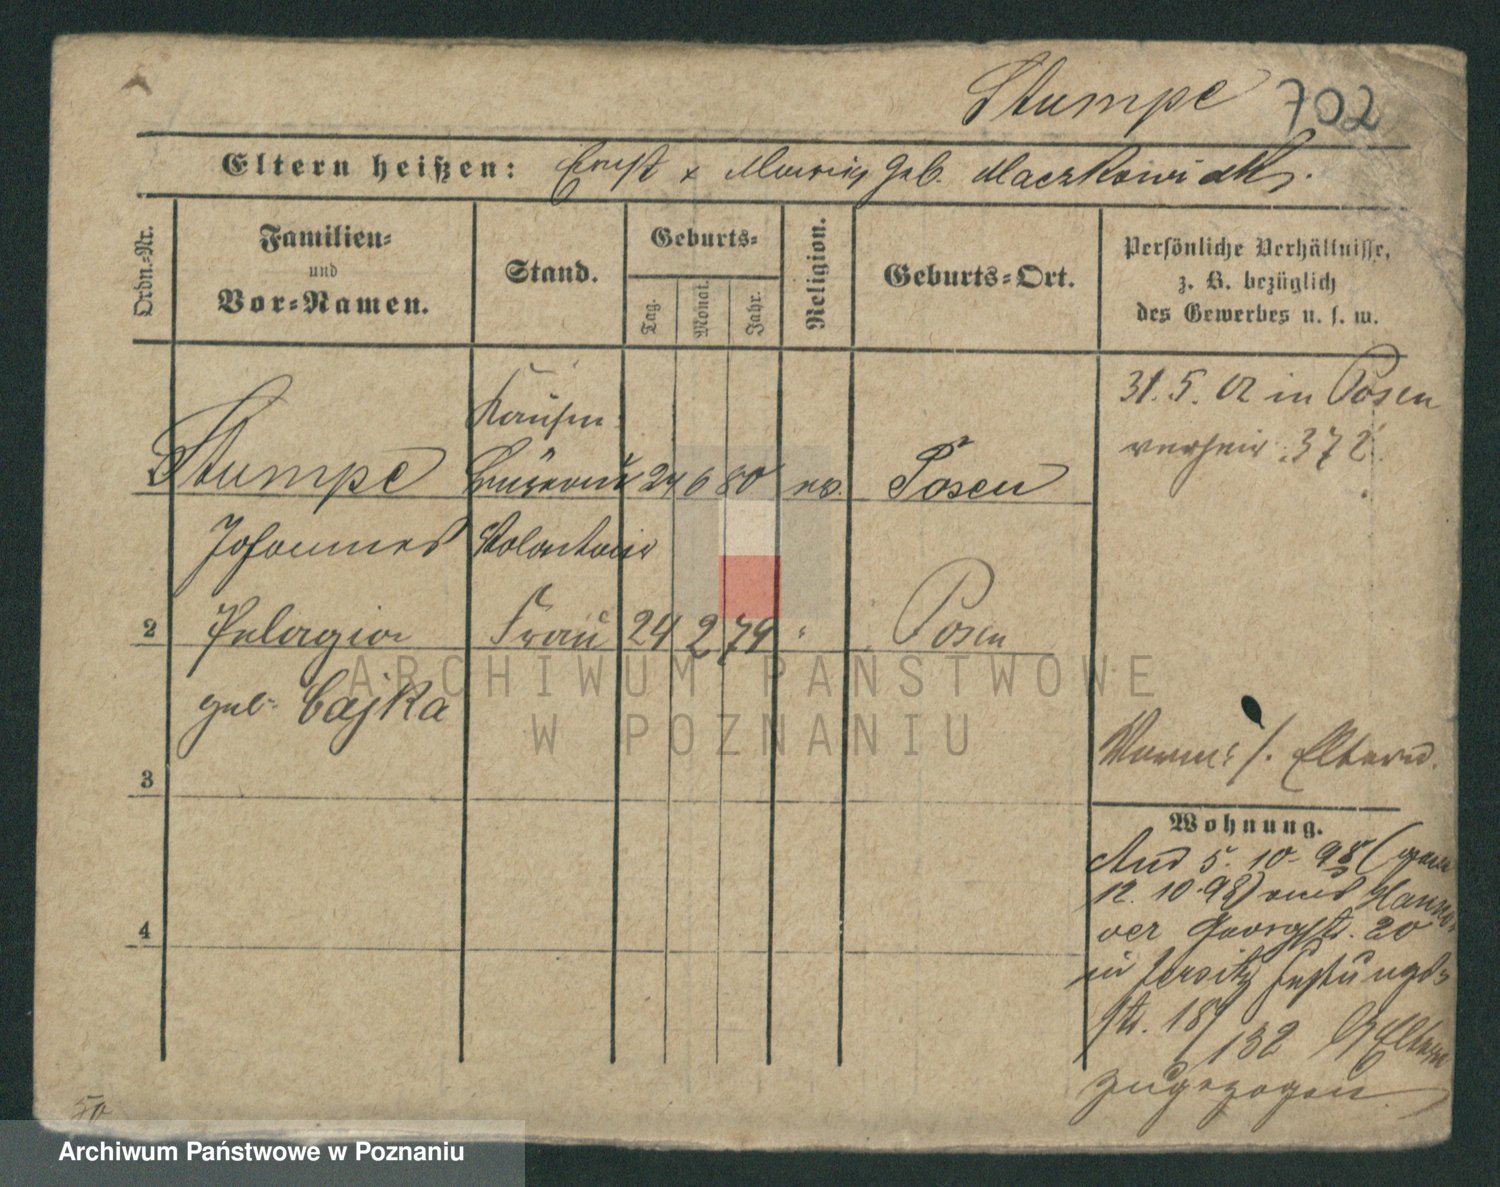 Stumpe 702
Eltern heißen: Ernst & geb. Maczkowiak.
Ordn.-Nr.
Familien-
und
Vor-Namen.
Stand.
Geburts-
Tag.
Monat.
Jahr.
Religion.
Geburts-Ort.
Persönliche Verhältnisse,
z. B. bezüglich
des Gewerbes u. s. w.
31. 5. 02 in Posen
verheir. 372.
Stumpe 24 6 80 Posen
Johannes Volontair
2 Pelagia Frau 24 2 79 " Posen
geb. Cajka
3
Eltern.
Wohnung.
Aus 5. 10. 98 (gem.
12. 10. 98) aus Hanno-
ver Georgstr. 20
4
in Jersitz Festungs-
str. 18/
132 Eltern
zugezogen.
50
ARCHIWUM PAŃSTWOWE
W POZNANIU
Archiwum Państwowe w Poznaniu